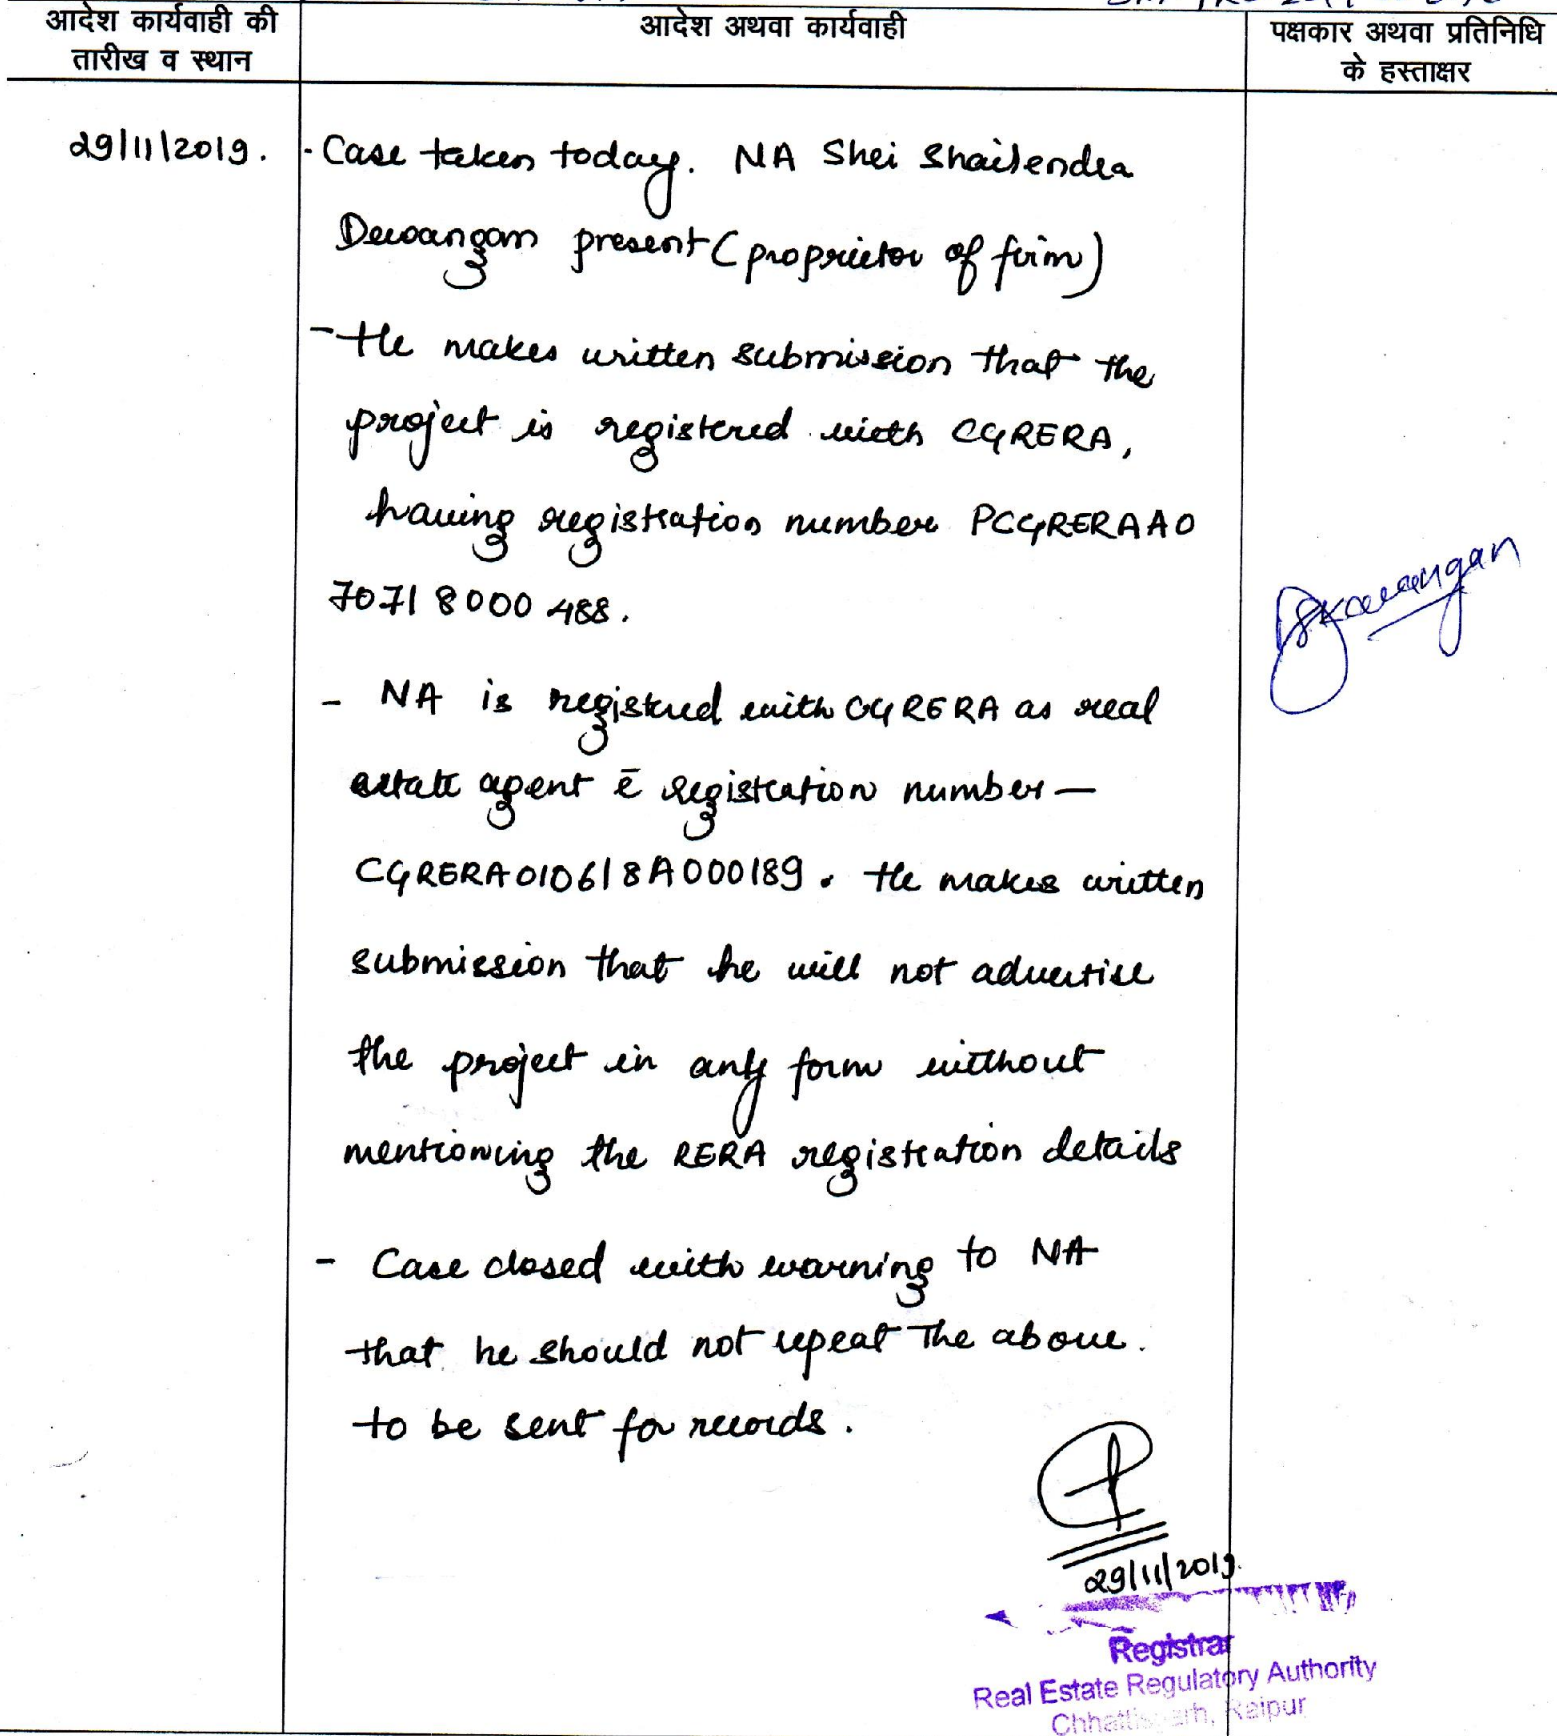 आदेश कार्यवाही की
तारीख व स्थान
आदेश अथवा कार्यवाही
पक्षकार अथवा प्रतिनिधि
के हस्ताक्षर
29/11/2019.
- Case taken today. NA Shri Shailendra
Dewangan present (proprietor of firm)
- He makes written submission that the
project is registered with CGRERA,
having registration number PCGRERAA0
70718000488.
- NA is registred with CGRERA as real
estate agent c̄ registration number —
CGRERA010618A000189. He makes written
submission that he will not advertise
the project in any form without
mentioning the RERA registration details
- Case closed with warning to NA
that he should not repeat the above.
to be sent for records.
29/11/2019.
Registrar
Real Estate Regulatory Authority
Chhattisgarh, Raipur